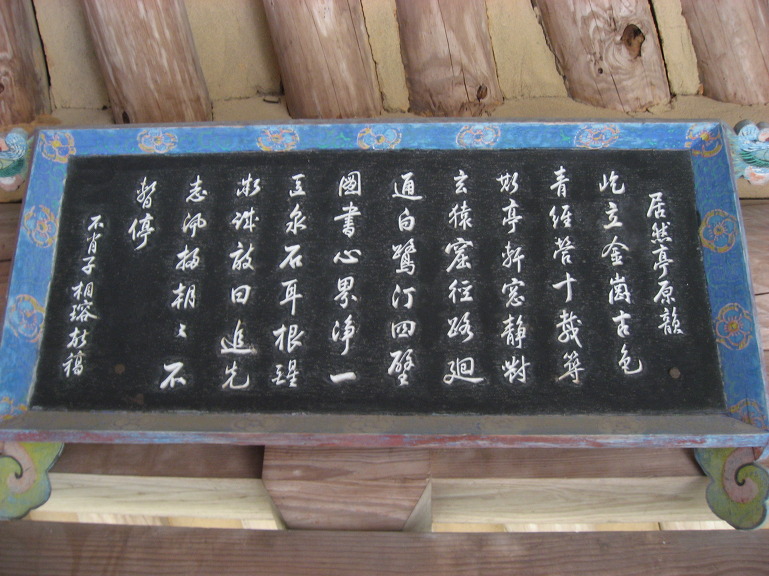 居然亭原韻
屹立金崗古色
青經營十載築
斯亭軒窓静對
玄猿窟徑路廻
通白鷺汀四壁
圖書心界淨一
区泉石耳根醒
微誠敢曰追先
志洒掃朝〻不
暫停
不肖子相瑢敬稿